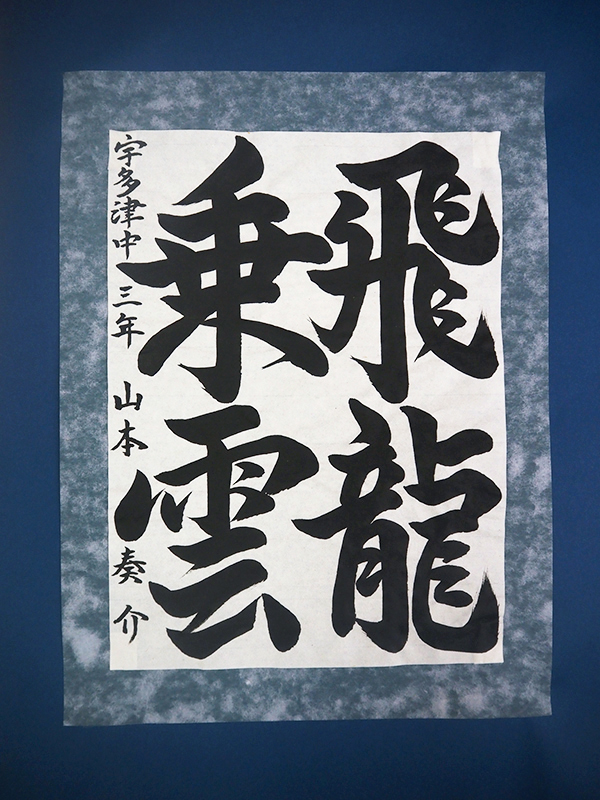 飛龍
乗雲
宇多津中 三年 山本 奏介